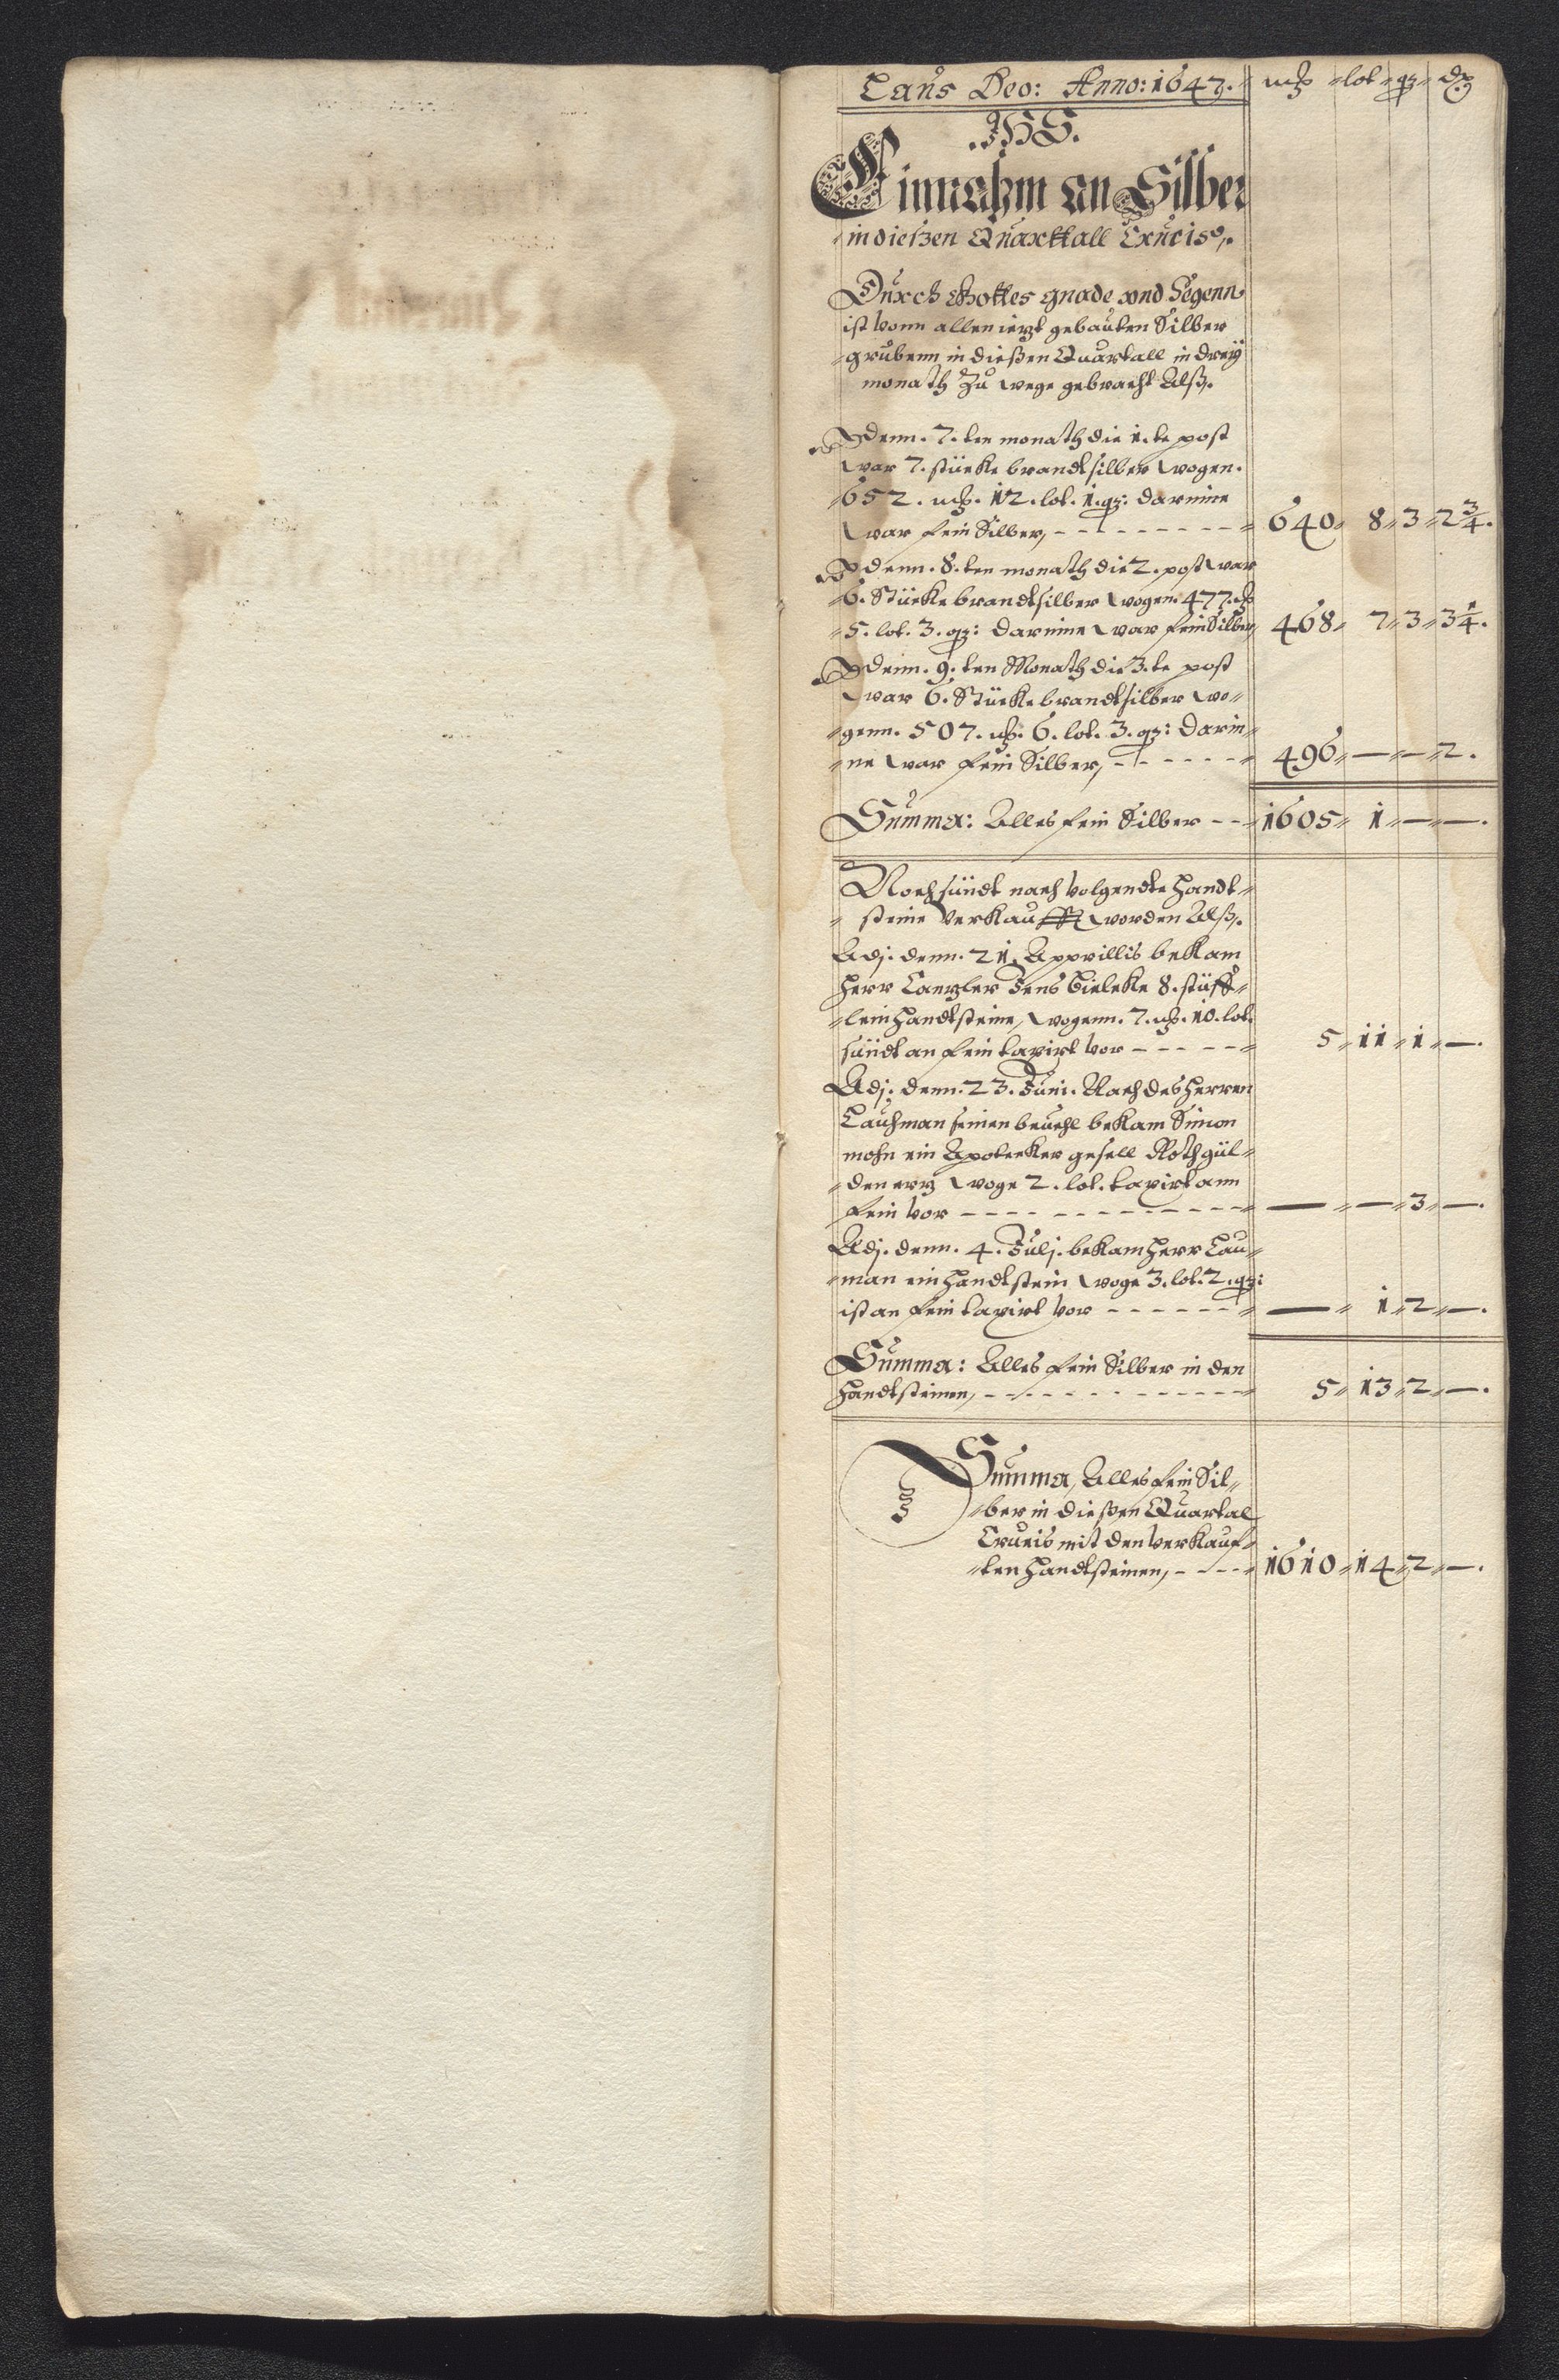 Laus Deo: Anno: 1647. mk lot qz d
.JHS.
Einnahm an Silber
in dießen Quarttall Crucis,
Durch Gottes gnade vnd Segenn
ist vonn allen ietzt gebauten Silber
grubenn in dießen Quartall in dreÿ
monath Zu wege gebracht Alß.
denn. 7. ten monath die 1. te post
war 7. stücke brandtsilber wogen.
652. mk. 12. lot. 1. qz: darinne
war fein Silber, 640 8 3 2 3/4.
denn. 8. ten monath die 2. post war
6. Stücke brandtsilber wogen. 477. mk
5. lot. 3. qz: darinne war fein Silber, 468 7 3 3 1/4.
denn. 9. ten Monath die 3. te post
war 6. Stücke brandtsilber wo=
=genn. 507. mk. 6. lot. 3. qz: darin=
=ne war fein Silber, 496 — — 2.
Summa: Alles fein Silber 1605 1 — —.
Noch sündt nach volgendte handt=
= steine verkaufft worden Alß.
Adj. denn. 21. Apprillis bekam
herr Cantzler Jens Bielcke 8. stüff=
=lein handtsteine, wogenn. 7. mk. 10. lot.
sündt an fein taxirt vor 5 11 1 —.
Adj: denn. 23. Juni. Nach des herren
Lauhman seinen beuehl bekam Simon
mohn ein Apotecker gesell Rothgül=
=den ertz woge 2. lot. taxirt ann
fein vor — — 3 —.
Adj. denn. 4. Julj. bekam herr Lau=
=man ein handtstein woge 3. lot. 2. qz:
ist an fein taxirt vor — 1 2 —.
Summa: Alles fein Silber in den
handtsteinen, 5 13 2 —.
Summa, Alles fein Sil=
=ber in dießen Quartal
Crucis mit den verkauf=
=ten handtsteinen, 1610 14 2 —.